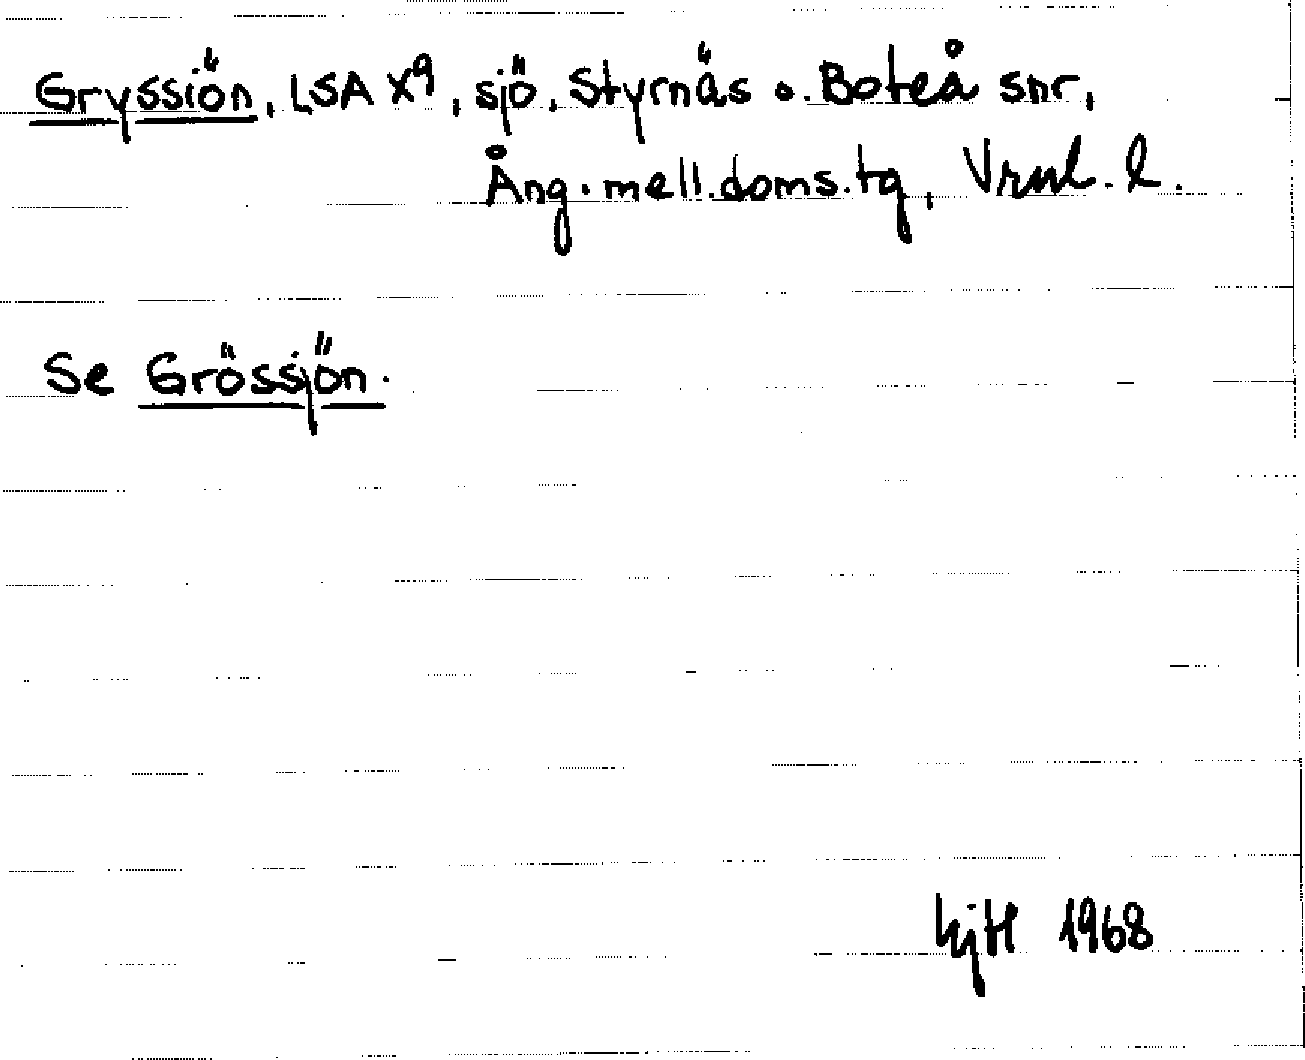 Gryssiön, LSA X9, sjö, Styrnäs o. Boteå snr,
Ång. mell. doms. tg, Vrnl. l.
Se Grössjön.
1968